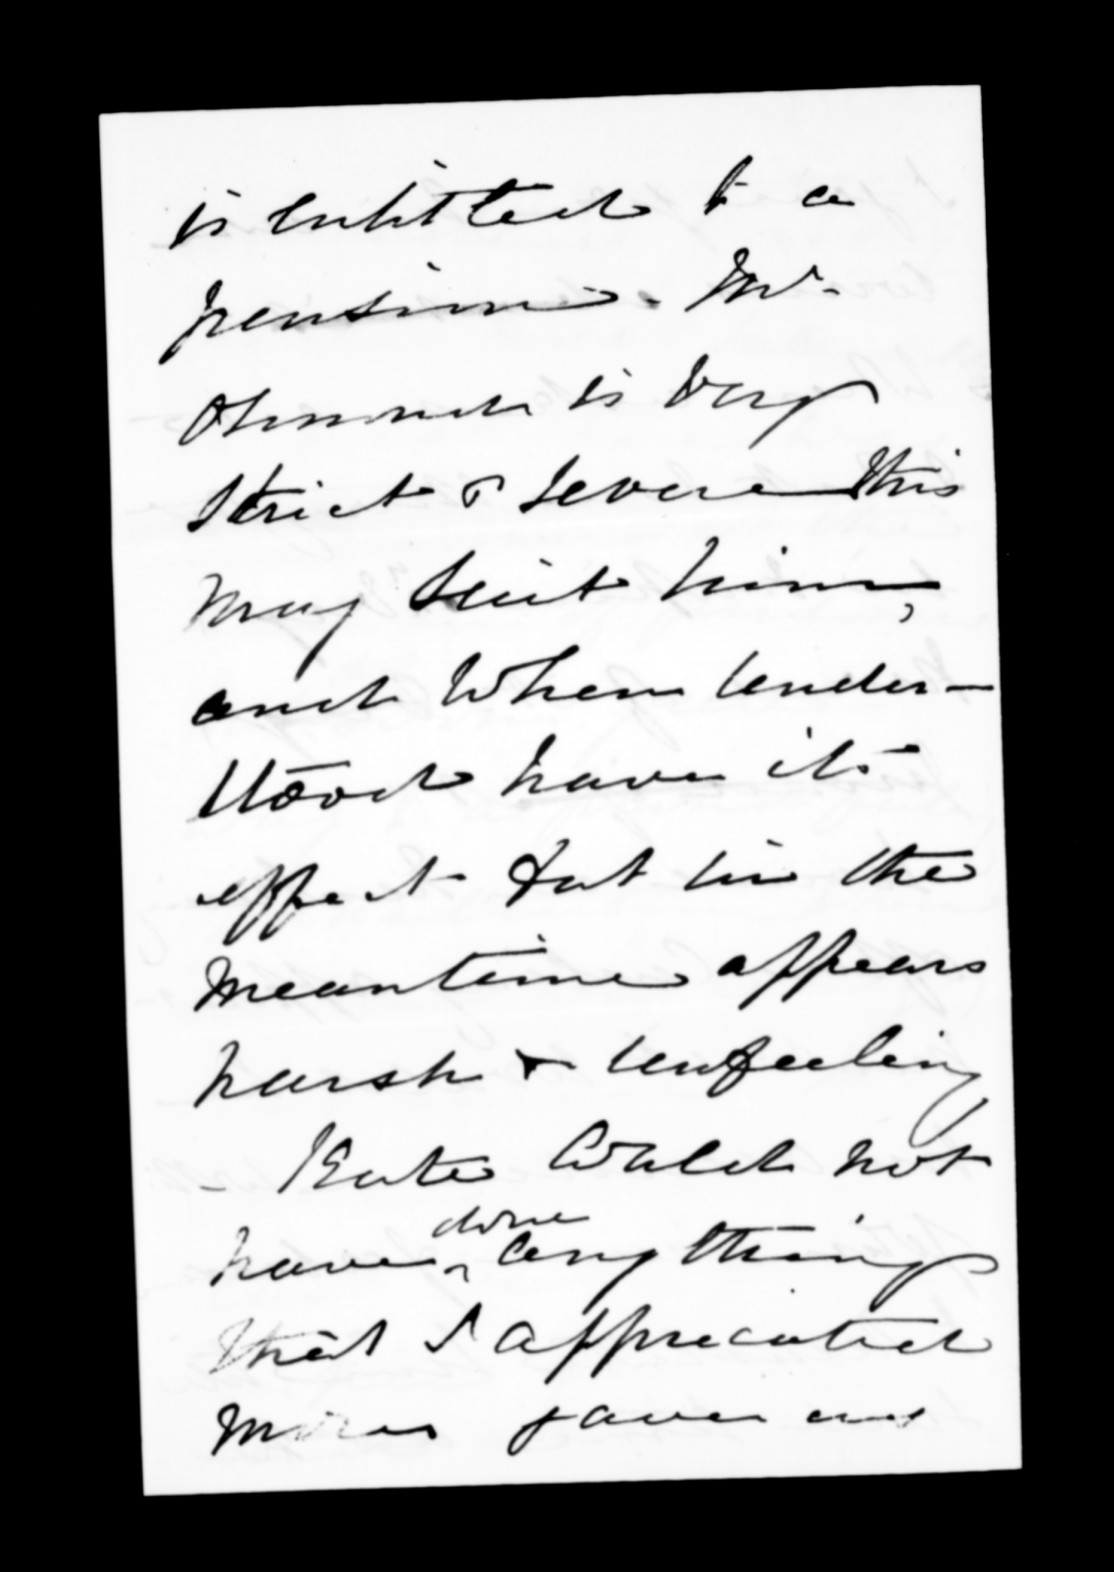 is entitled to a
pension. Mr.
Ormond is very
strict & severe this
may suit him,
and when under-
stood have its
effect but in the
meantime appears
harsh & unfeeling
- Kate could not
have done any thing
that I appreciated
more